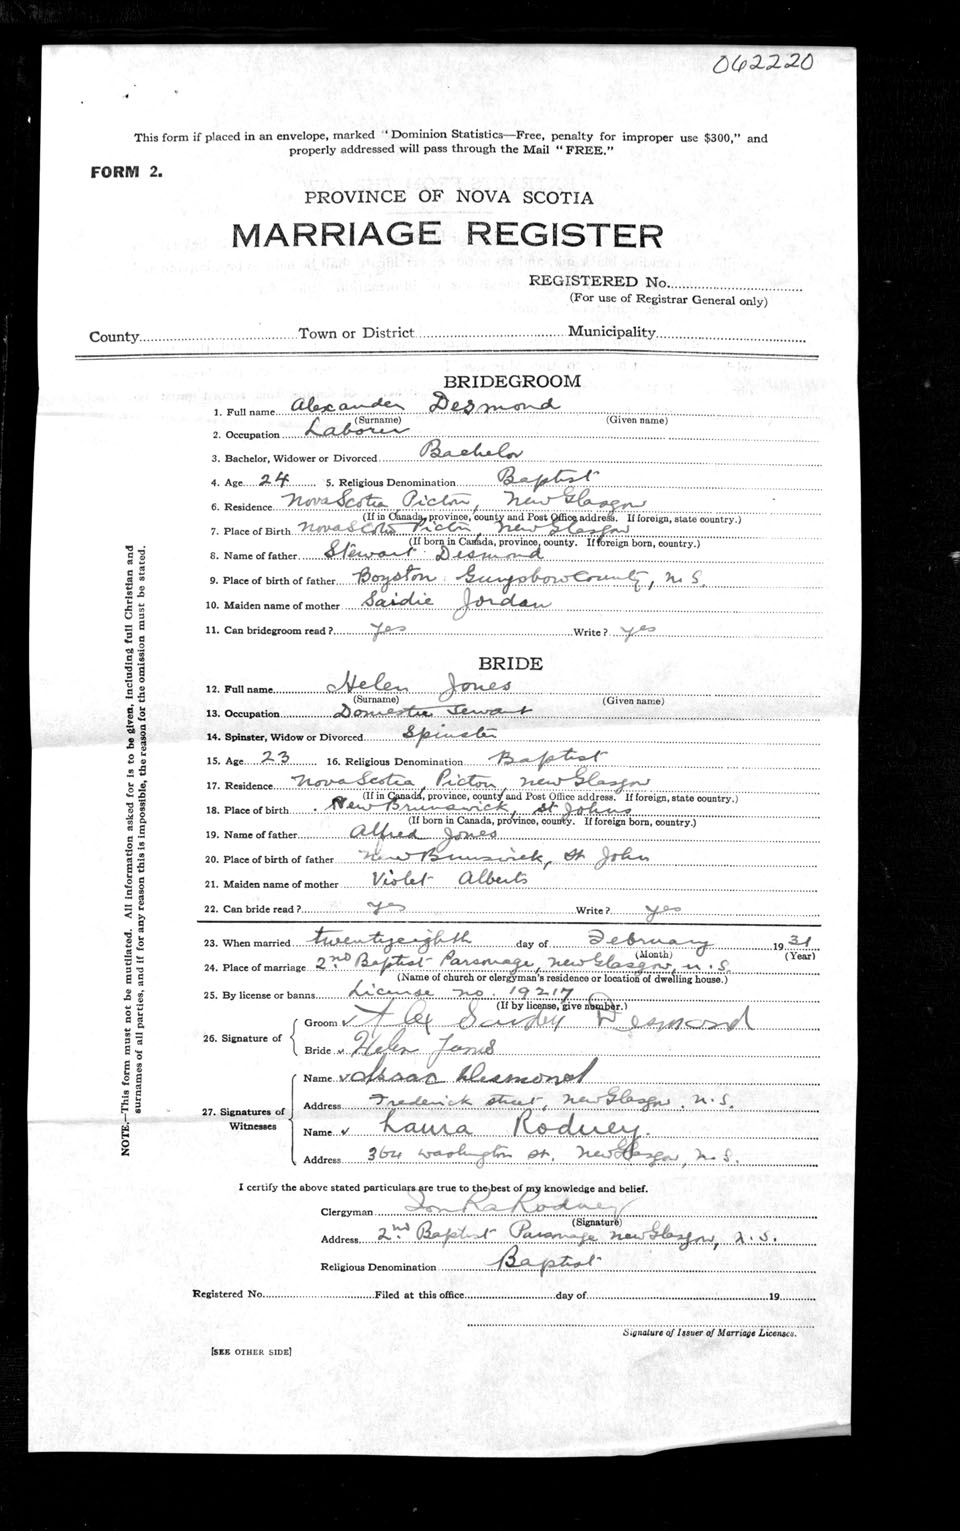 062220
This form if placed in an envelope, marked "Dominion Statistics—Free, penalty for improper use $300," and
properly addressed will pass through the Mail "FREE."
FORM 2.
PROVINCE OF NOVA SCOTIA
MARRIAGE REGISTER
REGISTERED No.
(For use of Registrar General only)
County Town or District Municipality
BRIDEGROOM
1. Full name Alexander Desmond
(Surname) (Given name)
2. Occupation Laborer
3. Bachelor, Widower or Divorced Bachelor
4. Age 24 5. Religious Denomination Baptist
6. Residence Nova Scotia Picton, New Glasgow
(If in Canada, province, county and Post Office address. If foreign, state country.)
7. Place of Birth Nova Scotia Picton, New Glasgow
(If born in Canada, province, county. If foreign born, country.)
8. Name of father Stewart Desmond
9. Place of birth of father Boyston Guysboro County, N.S.
10. Maiden name of mother Saidie Jordan
11. Can bridegroom read? yes Write? yes
BRIDE
12. Full name Helen Jones
(Surname) (Given name)
13. Occupation Domestic Servant
14. Spinster, Widow or Divorced Spinster
15. Age 23 16. Religious Denomination Baptist
17. Residence Nova Scotia, Picton, New Glasgow
(If in Canada, province, county and Post Office address. If foreign, state country.)
18. Place of birth New Brunswick, St Johns
(If born in Canada, province, county. If foreign born, country.)
19. Name of father Alfred Jones
20. Place of birth of father New Brunswick, St John
21. Maiden name of mother Violet Alberts
22. Can bride read? yes Write? yes
23. When married twentyeighth day of February 1931
(Month) (Year)
24. Place of marriage 2nd Baptist Parsonage, New Glasgow, N.S.
(Name of church or clergyman's residence or location of dwelling house.)
25. By license or banns License no. 19217
(If by license, give number.)
26. Signature of
Groom Alex Desmond
Bride Helen Jones
27. Signatures of Witnesses
Name Isaac Desmond
Address Frederick Street, New Glasgow, N.S.
Name Laura Rodney.
Address 364 Washington St. New Glasgow, N.S.
I certify the above stated particulars are true to the best of my knowledge and belief.
Clergyman Rodney
(Signature)
Address 2nd Baptist Parsonage New Glasgow, N.S.
Religious Denomination Baptist
Registered No. Filed at this office day of 19
Signature of Issuer of Marriage Licenses.
[SEE OTHER SIDE]
NOTE.—This form must not be mutilated. All information asked for is to be given, including full Christian and
surnames of all parties, and if for any reason this is impossible, the reason for the omission must be stated.